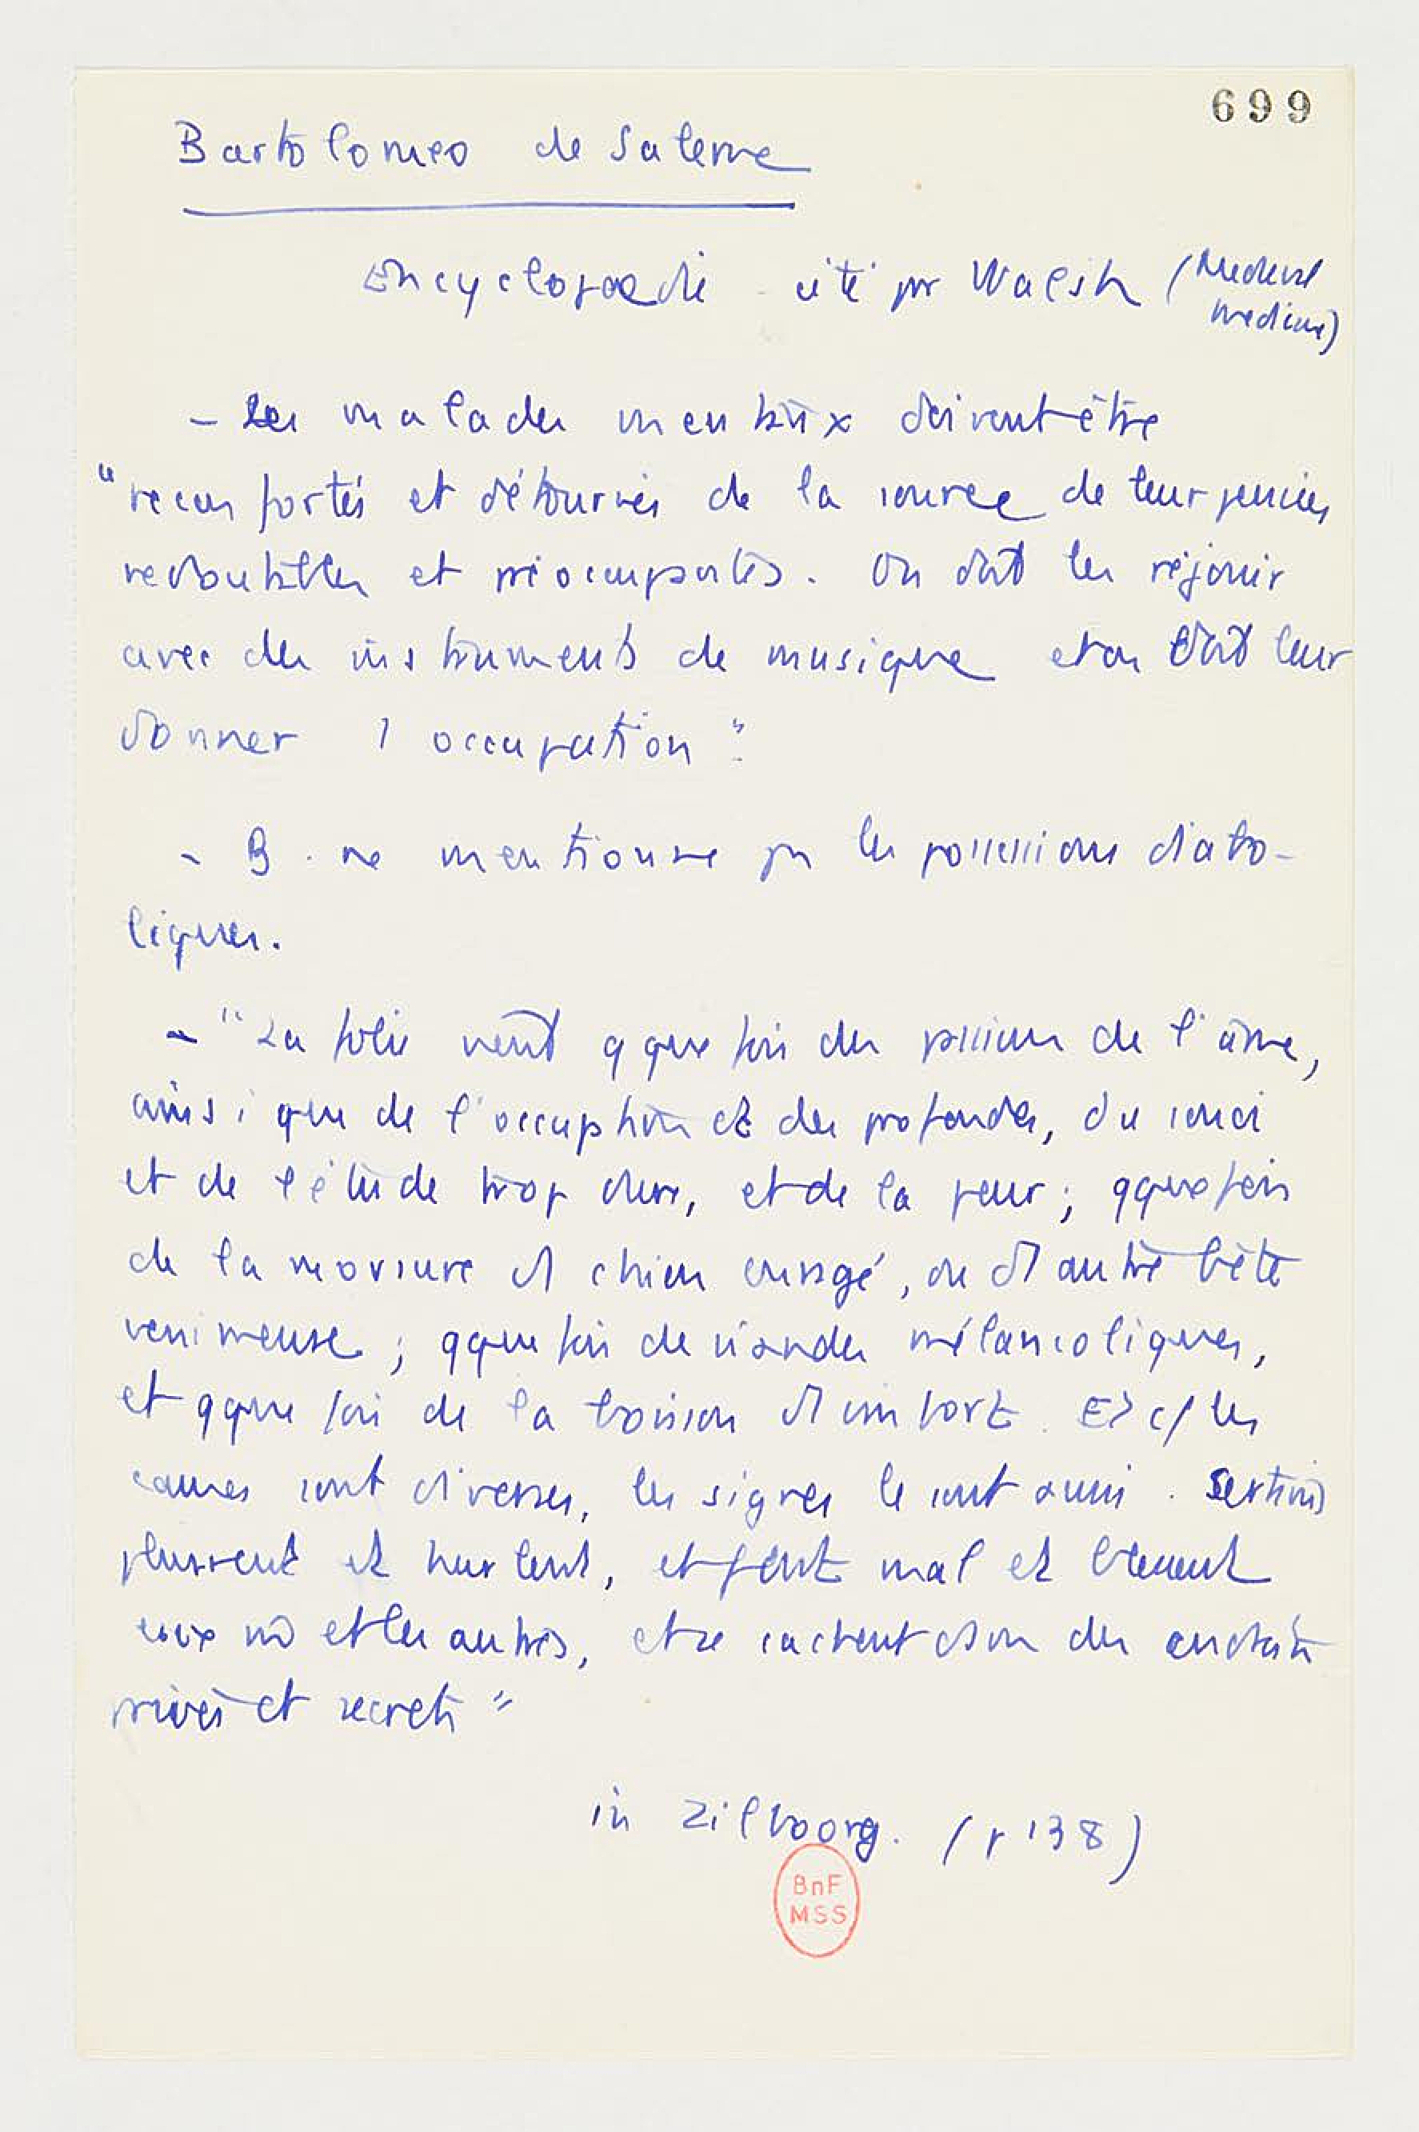 699
Bartolomeo de Salerne
Encyclopaedie cité par Walsh (Medieval
medicine)
- Les malades mentaux doivent être
"reconfortés et détournés de la source de leur pensées
redoutables et préoccupantes. On doit les réjouir
avec des instruments de musique et on doit leur
donner 1 occupation".
- B. ne mentionne pas les possessions diabo-
liques.
- "La folie vient qquefois des passions de l'âme,
ainsi que de l'occupation et des profondes, du souci
et de l'étude trop dure, et de la peur ; qquefois
de la morsure d1 chien enragé, ou d1 autre bête
venimeuse ; qquefois de viandes mélancoliques,
et qquefois de la boisson d1 vin forte. Et c/ les
causes sont diverses, les signes le sont aussi. Certains
pleurent et hurlent, et font mal et blessent
eux m̂ et les autres, et se cachent dans des endroits
privés et secrets"
in Zilboorg. (p 138)
BnF
MSS